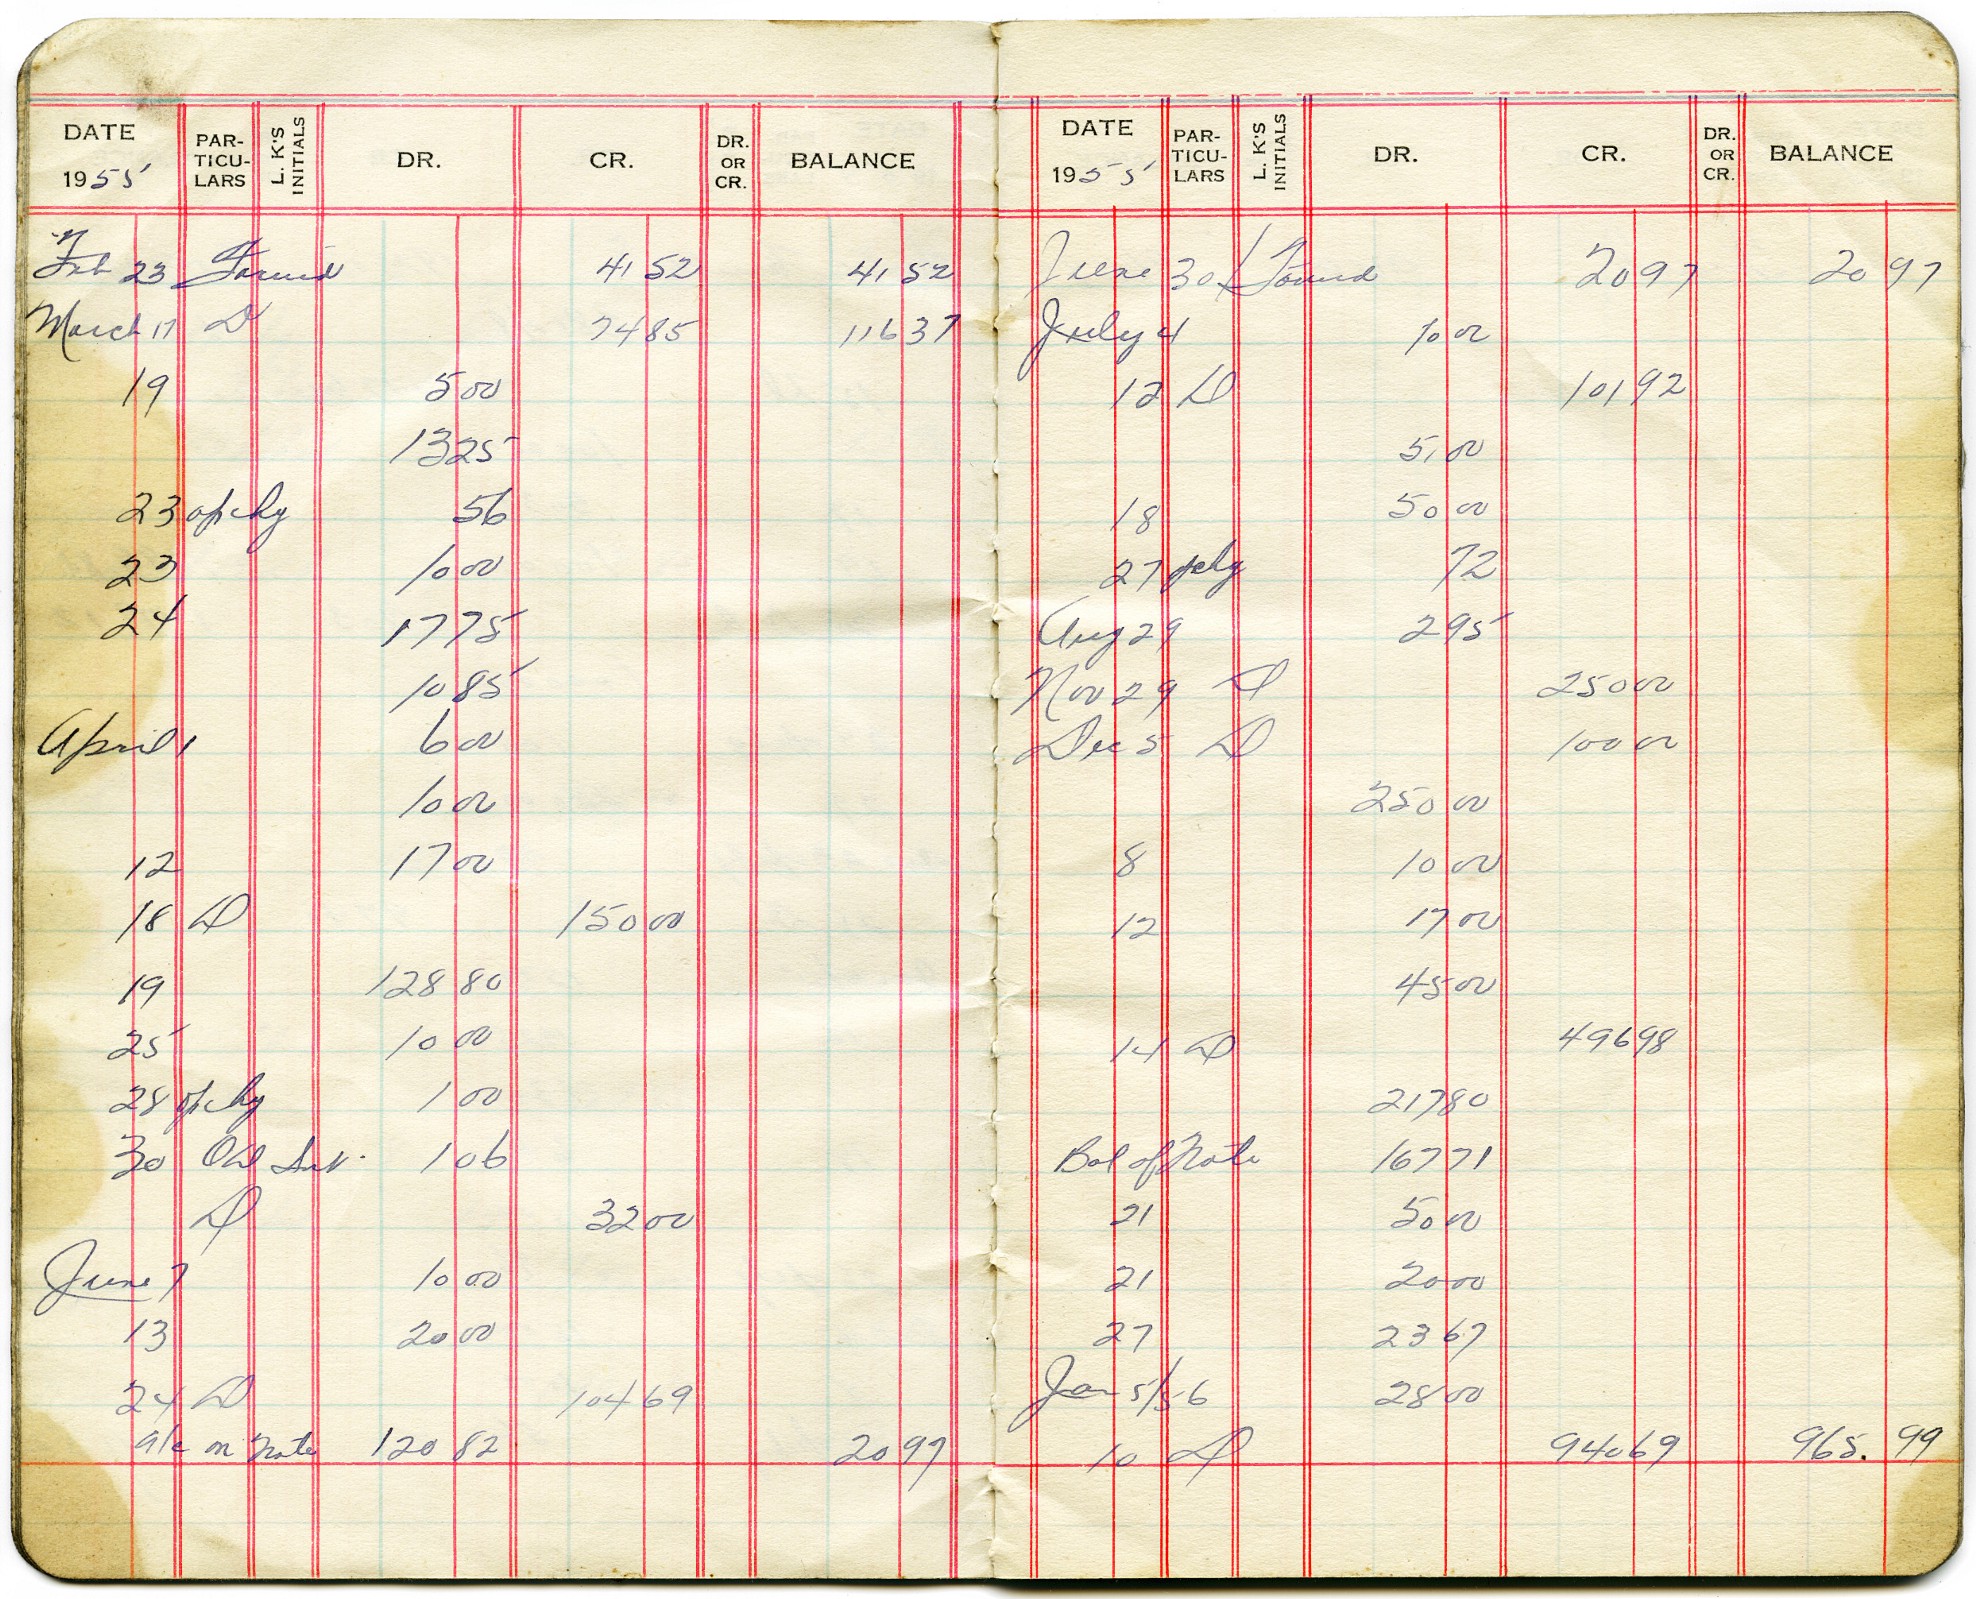 DATE PARTICULARS L. K'S INITIALS DR. CR. DR. OR CR. BALANCE
1955
Feb 23 Forwd 41 52 41 52
March 17 D 74 85 116 37
19 5 00
13 25
23 op chg 56
23 10 00
24 17 75
10 85
April 1 6 00
10 00
12 17 00
18 D 150 00
19 128 80
25 10 00
28 op chg 1 00
30 Int. 1 06
D 32 00
June 7 10 00
13 20 00
24 D 104 69
a/c on Note 120 82 20 97
DATE PARTICULARS L. K'S INITIALS DR. CR. DR. OR CR. BALANCE
1955
June 30 Forwd 20 97 20 97
July 4 10 00
12 D 101 92
5 00
18 50 00
27 chg 72
Aug 29 2 95
Nov 29 D 250 00
Dec 5 D 100 00
250 00
8 10 00
12 17 00
45 00
14 D 496 98
217 80
Bal of Note 167 71
21 50 00
21 20 00
27 23 67
Jan 5/56 28 00
10 D 940 69 965. 99